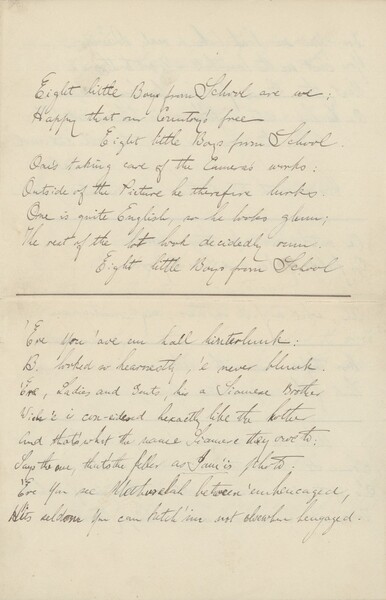 Eight little Boys from School are we;
Happy that our Country's free
Eight little Boys from School.
One's taking care of the Camera's works:
Outside of the Picture he therefore lurks.
One is quite English, so he looks glum;
The rest of the lot look decidedly rum.
Eight little Boys from School
'Ere You 'ave em hall
B. looked so hearnestly, 'e never blunk.
'Ere, Ladies and Gents, his a Siamese Brother
Wich 'e is con-sidered hexactly like the hother
And that's what the name Siamese they owe to;
Says the one, that's the feller as I am is photo;
'Ere You see Methuselah between 'em hencaged,
Hits seldom You can ketch 'im not elsewhere hengaged.